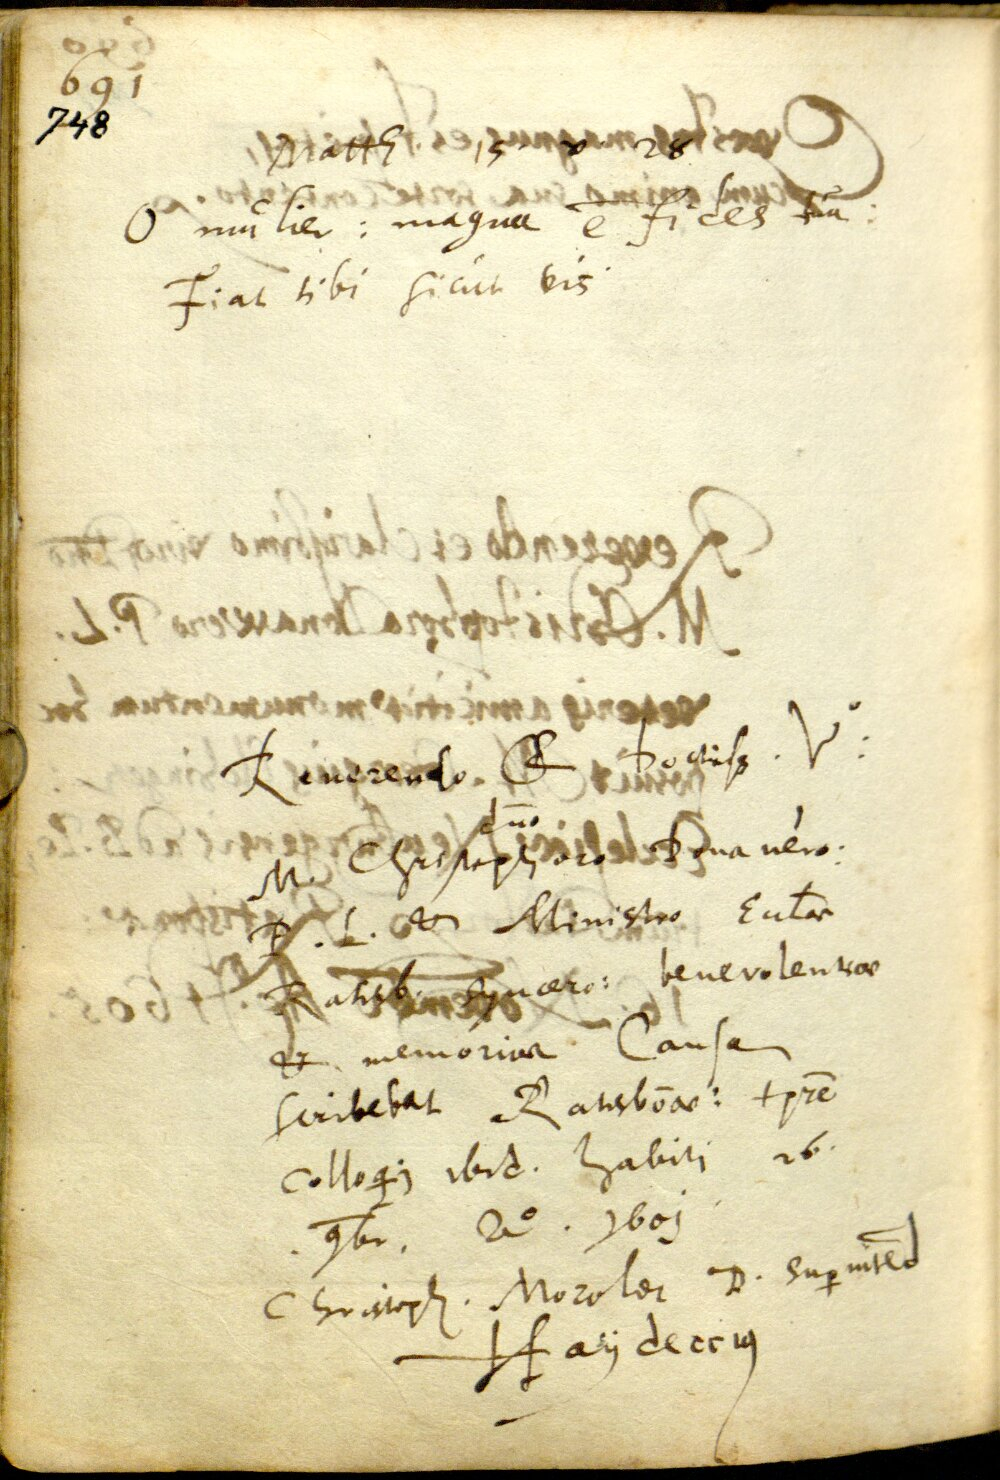 691
748
Matth 15 v. 28
O mulier: magna ē fides tūa:
Fiat tibi sicut vis
Reverendo & Doctiss. Vº:
dn̄o
M. Christophoro Donavero:
P. L. & Ministro Eccl̄ae
Ratisb. syncero: benevolentiae
& memoriae Causa
scribebat Ratisbōae: tp̄re
Colloqij ibid. habiti 26.
9br. Aº. 1601
Christoph. Morolet D. Superintēd